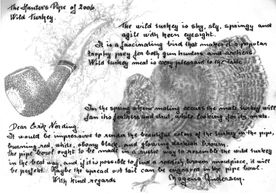 The Hunters Pipe of 2006
Wild Turkey
The wild turkey is shy, sly, springy and
agile with keen eyesight.
It is a fascinating bird that makes a popular
trophy prey for both gun hunters and archers.
Wild turkey meat is very pleasant to the taste.
In the spring when mating occurs the male turkey will
fan its feathers and strut, while looking for its mate.
Dear Erik Nording.
It would be impressive to render the beautiful color of the turkey in the pipe,
burning red, white, ebony black, and glowing darkish brown.
The pipe bowl ought to be made in a rustic way to resemble the wild turkey
in the best way, and if it is possible to find a reddish brown mouthpiece, it will
be perfect. Maybe the spread out tail can be engraved in the pipe bowl.
With kind regards
Mogens Andersen.